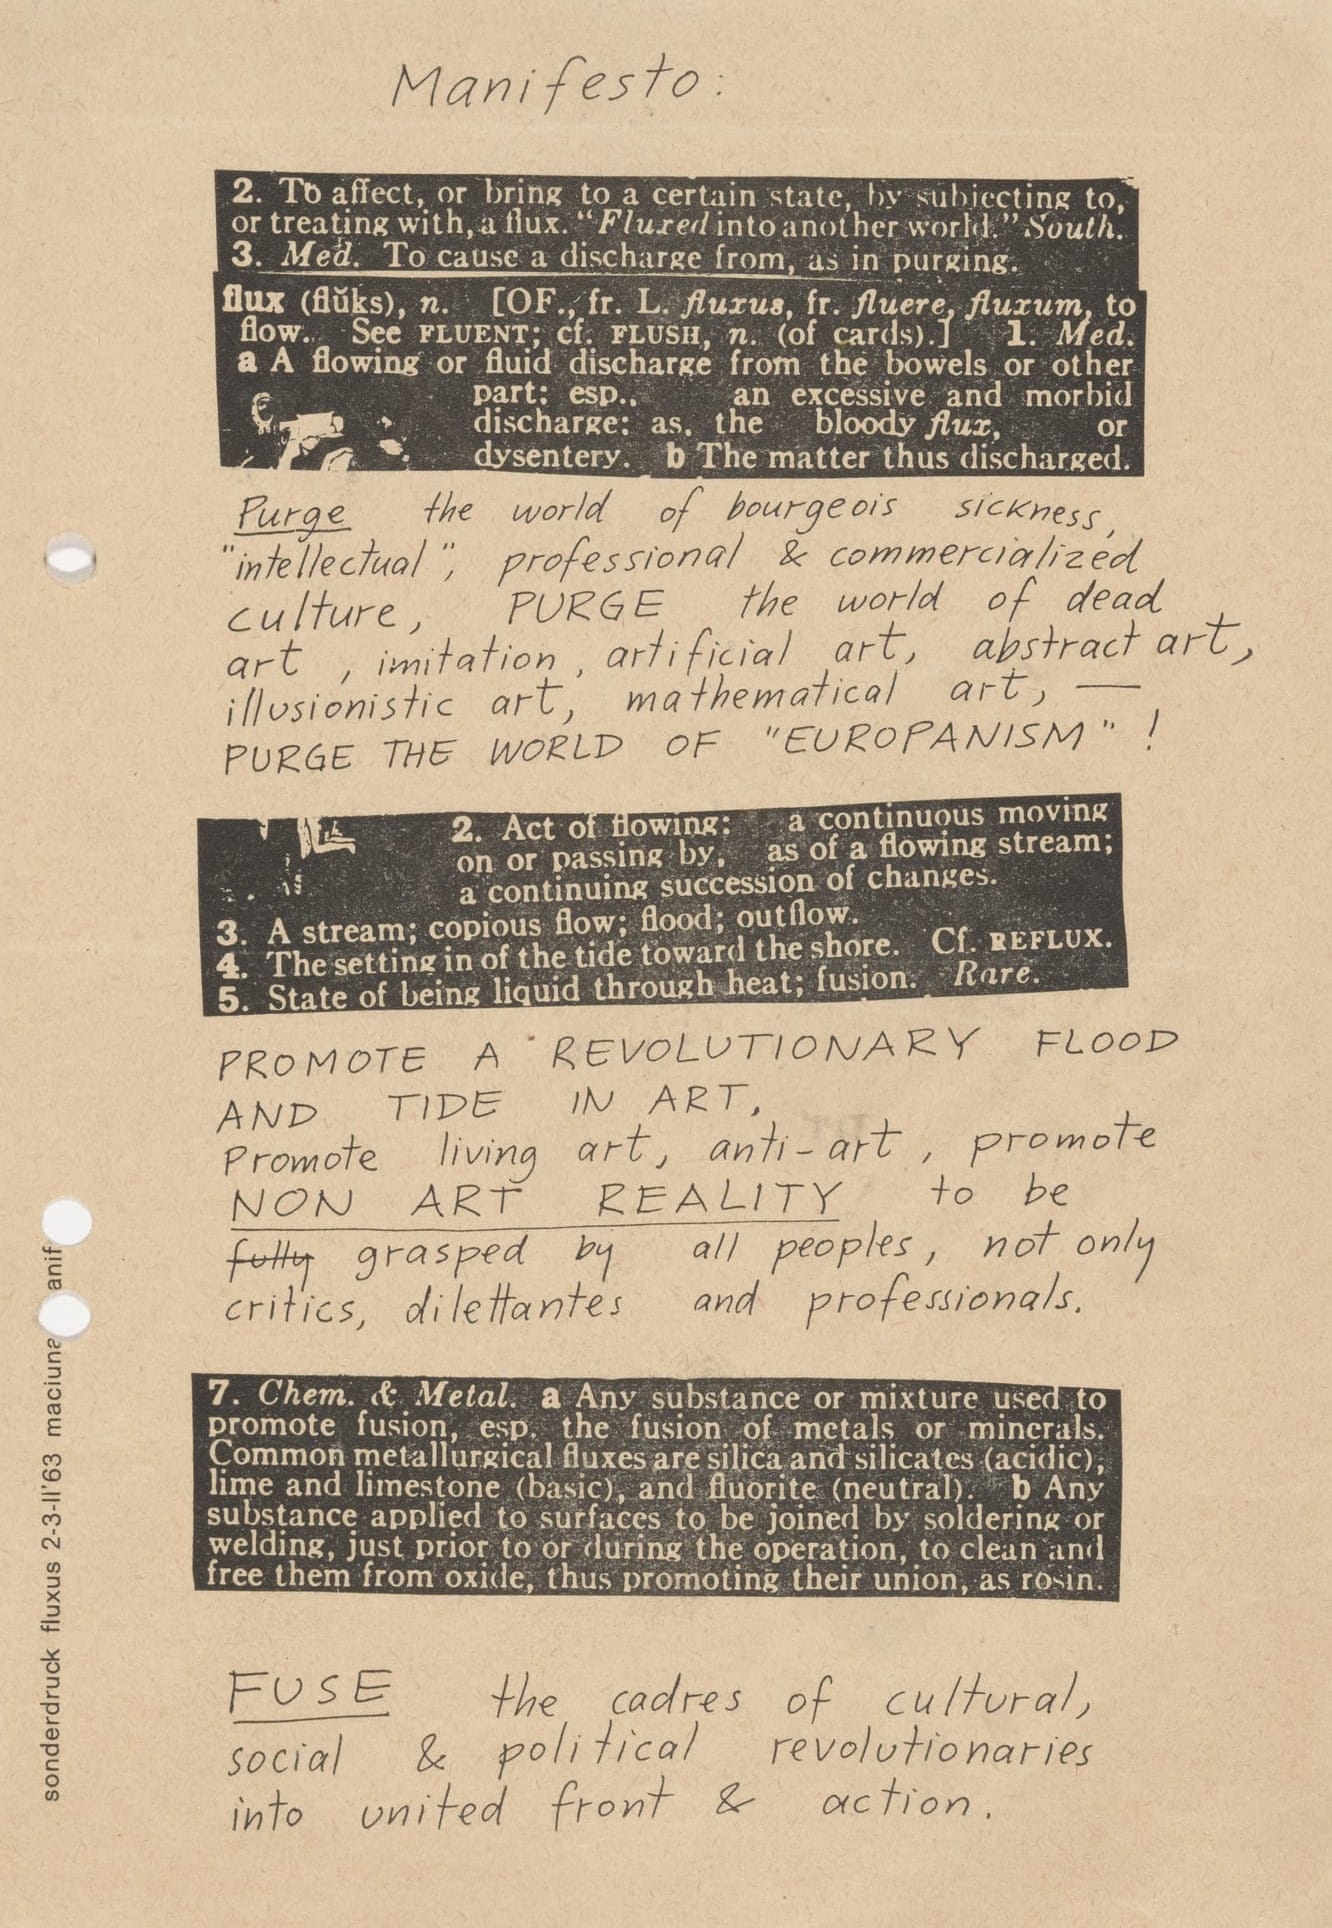 Manifesto:
2. To affect, or bring to a certain state, by subjecting to,
or treating with, a flux. “Fluxed into another world.” South.
3. Med. To cause a discharge from, as in purging.
flux (flŭks), n. [OF., fr. L. fluxus, fr. fluere, fluxum, to
flow. See FLUENT; cf. FLUSH, n. (of cards).] 1. Med.
a A flowing or fluid discharge from the bowels or other
part: esp., an excessive and morbid
discharge: as, the bloody flux, or
dysentery. b The matter thus discharged.
Purge the world of bourgeois sickness,
"intellectual", professional & commercialized
culture, PURGE the world of dead
art, imitation, artificial art, abstract art,
illusionistic art, mathematical art, —
PURGE THE WORLD OF "EUROPANISM"!
2. Act of flowing: a continuous moving
on or passing by, as of a flowing stream;
a continuing succession of changes.
3. A stream; copious flow; flood; outflow.
4. The setting in of the tide toward the shore. Cf. REFLUX.
5. State of being liquid through heat; fusion. Rare.
PROMOTE A REVOLUTIONARY FLOOD
AND TIDE IN ART,
Promote living art, anti-art, promote
NON ART REALITY to be
fully grasped by all peoples, not only
critics, dilettantes and professionals.
7. Chem. & Metal. a Any substance or mixture used to
promote fusion, esp. the fusion of metals or minerals.
Common metallurgical fluxes are silica and silicates (acidic),
lime and limestone (basic), and fluorite (neutral). b Any
substance applied to surfaces to be joined by soldering or
welding, just prior to or during the operation, to clean and
free them from oxide, thus promoting their union, as rosin.
FUSE the cadres of cultural,
social & political revolutionaries
into united front & action.
sonderdruck fluxus 2-3-II'63 maciuna anif